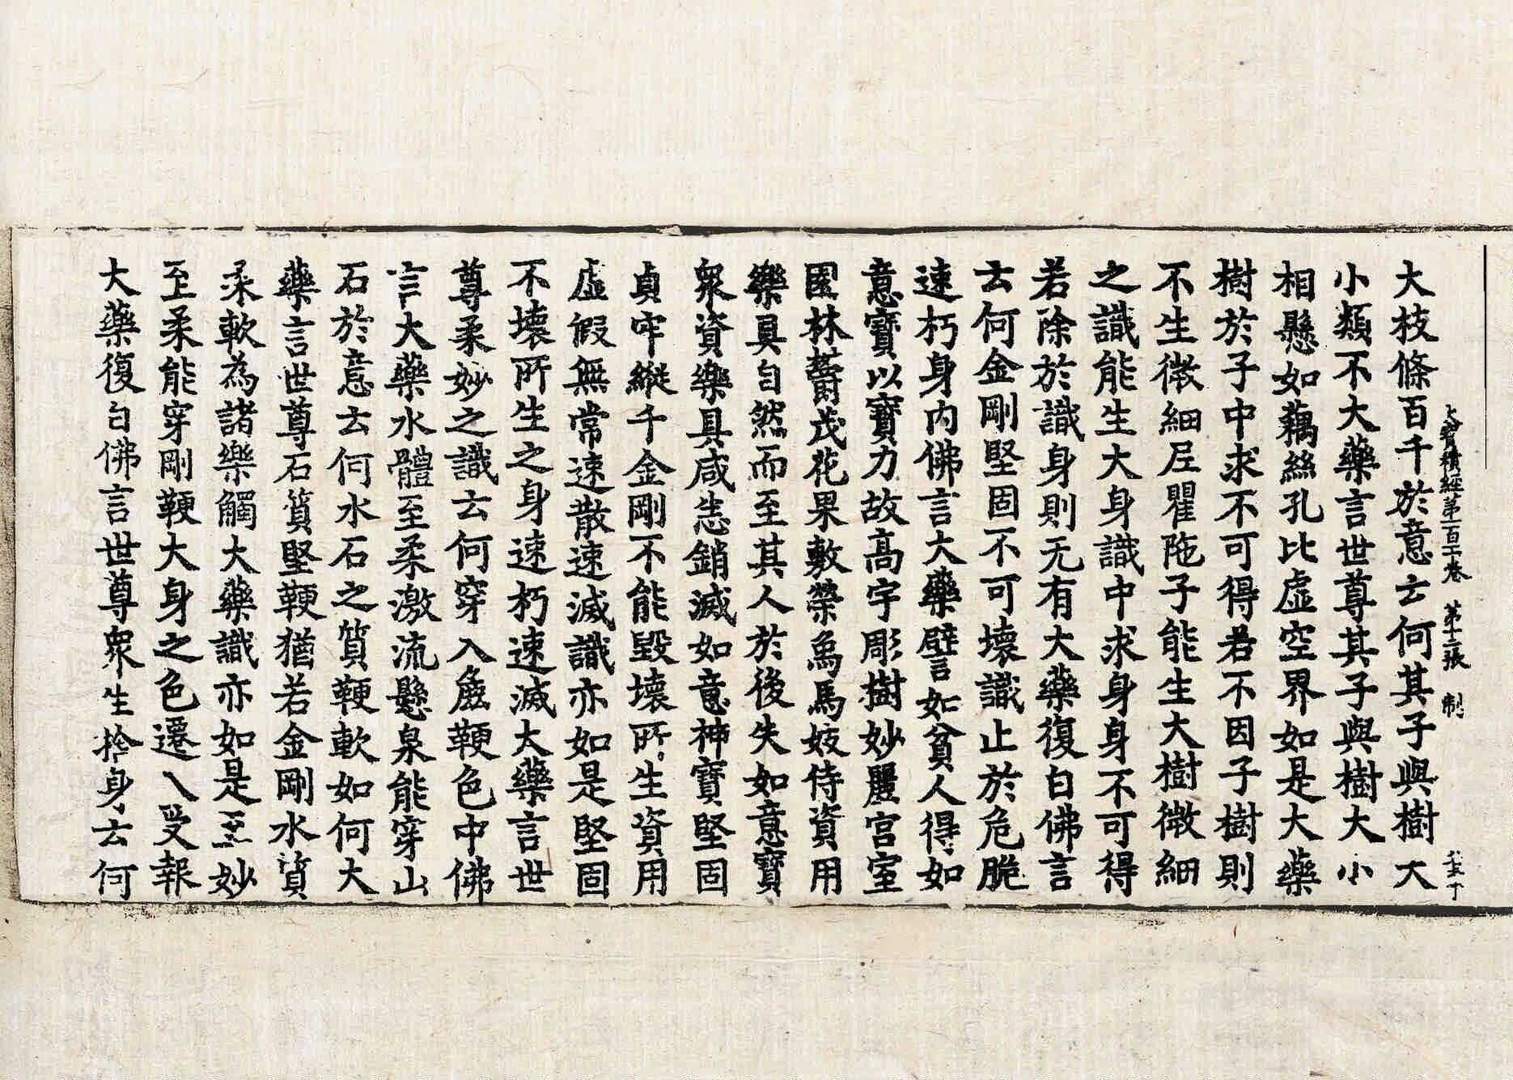 大寶積經第一百十卷　第十一張　制
大枝條百千於意云何其子與樹大
小類不大藥言世尊其子與樹大小
相懸如藕絲孔比虛空界如是大藥
樹於子中求不可得若不因子樹則
不生微細尼瞿陁子能生大樹微細
之識能生大身識中求身身不可得
若除於識身則无有大藥復白佛言
云何金剛堅固不可壞識止於危脆
速朽身內佛言大藥譬如貧人得如
意寶以寶力故高宇彫樹妙麗宮室
園林欝茂花果敷榮烏馬妓侍資用
樂具自然而至其人於後失如意寶
衆資樂具咸悉銷滅如意神寶堅固
貞牢縱千金剛不能毀壞所生資用
虛假無常速散速滅識亦如是堅固
不壞所生之身速朽速滅大藥言世
尊柔妙之識云何穿入麁鞕色中佛
言大藥水體至柔激流懸泉能穿山
石於意云何水石之質鞕軟如何大
藥言世尊石質堅鞕猶若金剛水質
柔軟為諸樂觸大藥識亦如是至妙
至柔能穿剛鞕大身之色遷入受報
大藥復白佛言世尊衆生捨身云何